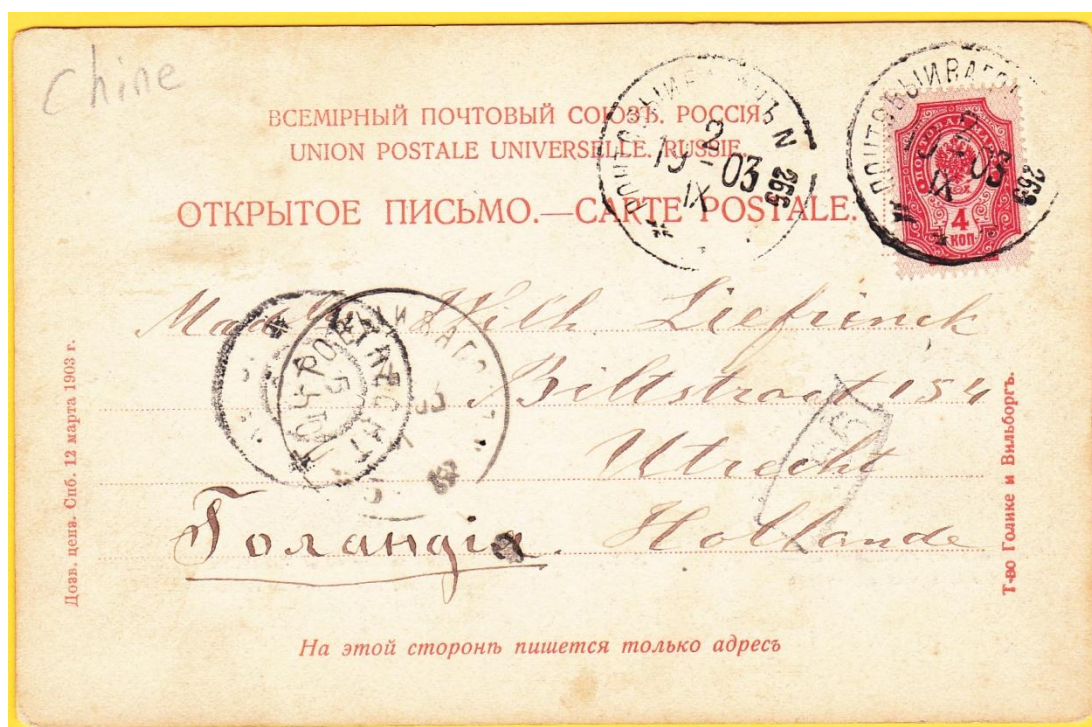 Chine
ВСЕМІРНЫЙ ПОЧТОВЫЙ СОЮЗЪ. РОССІЯ.
UNION POSTALE UNIVERSELLE. RUSSIE.
ОТКРЫТОЕ ПИСЬМО.—CARTE POSTALE.
ПОЧТОВЫЙ ВАГОНЪ N 265
2
19 03
IX
ПОЧТОВЫЙ ВАГО
2
03
IX
ПОЧТОВАЯ МАРКА
4
КОП
Wilh. Liefrinck
Biltstraat 154
Utrecht
Голандія. Hollande
УТРЕCHT
Дозв. цена. Спб. 12 марта 1903 г.
Т-во Голике и Вильборгъ.
На этой сторонѣ пишется только адресъ